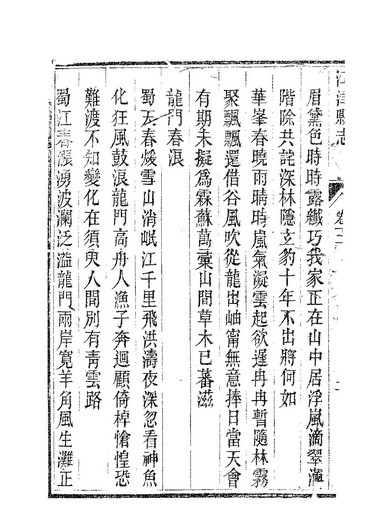 江津縣志
卷二
眉黛色時時露纖巧我家正在山中居浮嵐滴翠
階除共詫深林隱立豹十年不出將何如
華峯春曉雨晴時嵐氣凝雲起欲遲冉冉暫隨林霧
聚飄飄還借谷風吹從龍出岫甯無意捧日當天會
有期未擬為霖蘇萬彙山間草木已蕃滋
龍門春浪
蜀天春燠雪山消岷江千里飛洪濤夜深忽看神魚
化狂風鼓浪龍門高舟人漁子奔迴顧倚棹愴惶恐
難渡不知變化在須臾人間別有青雲路
蜀江春漲湧波瀾泛溢龍門兩岸寬羊角風生灘正